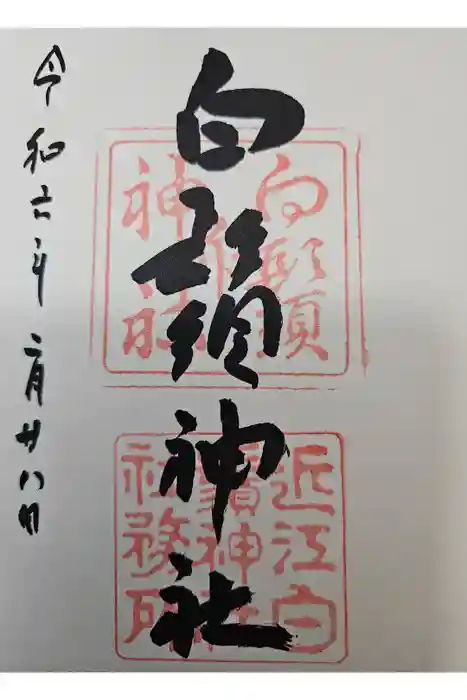 白鬚神社
令和六年二月廿八日
近江白
鬚神社
社務所